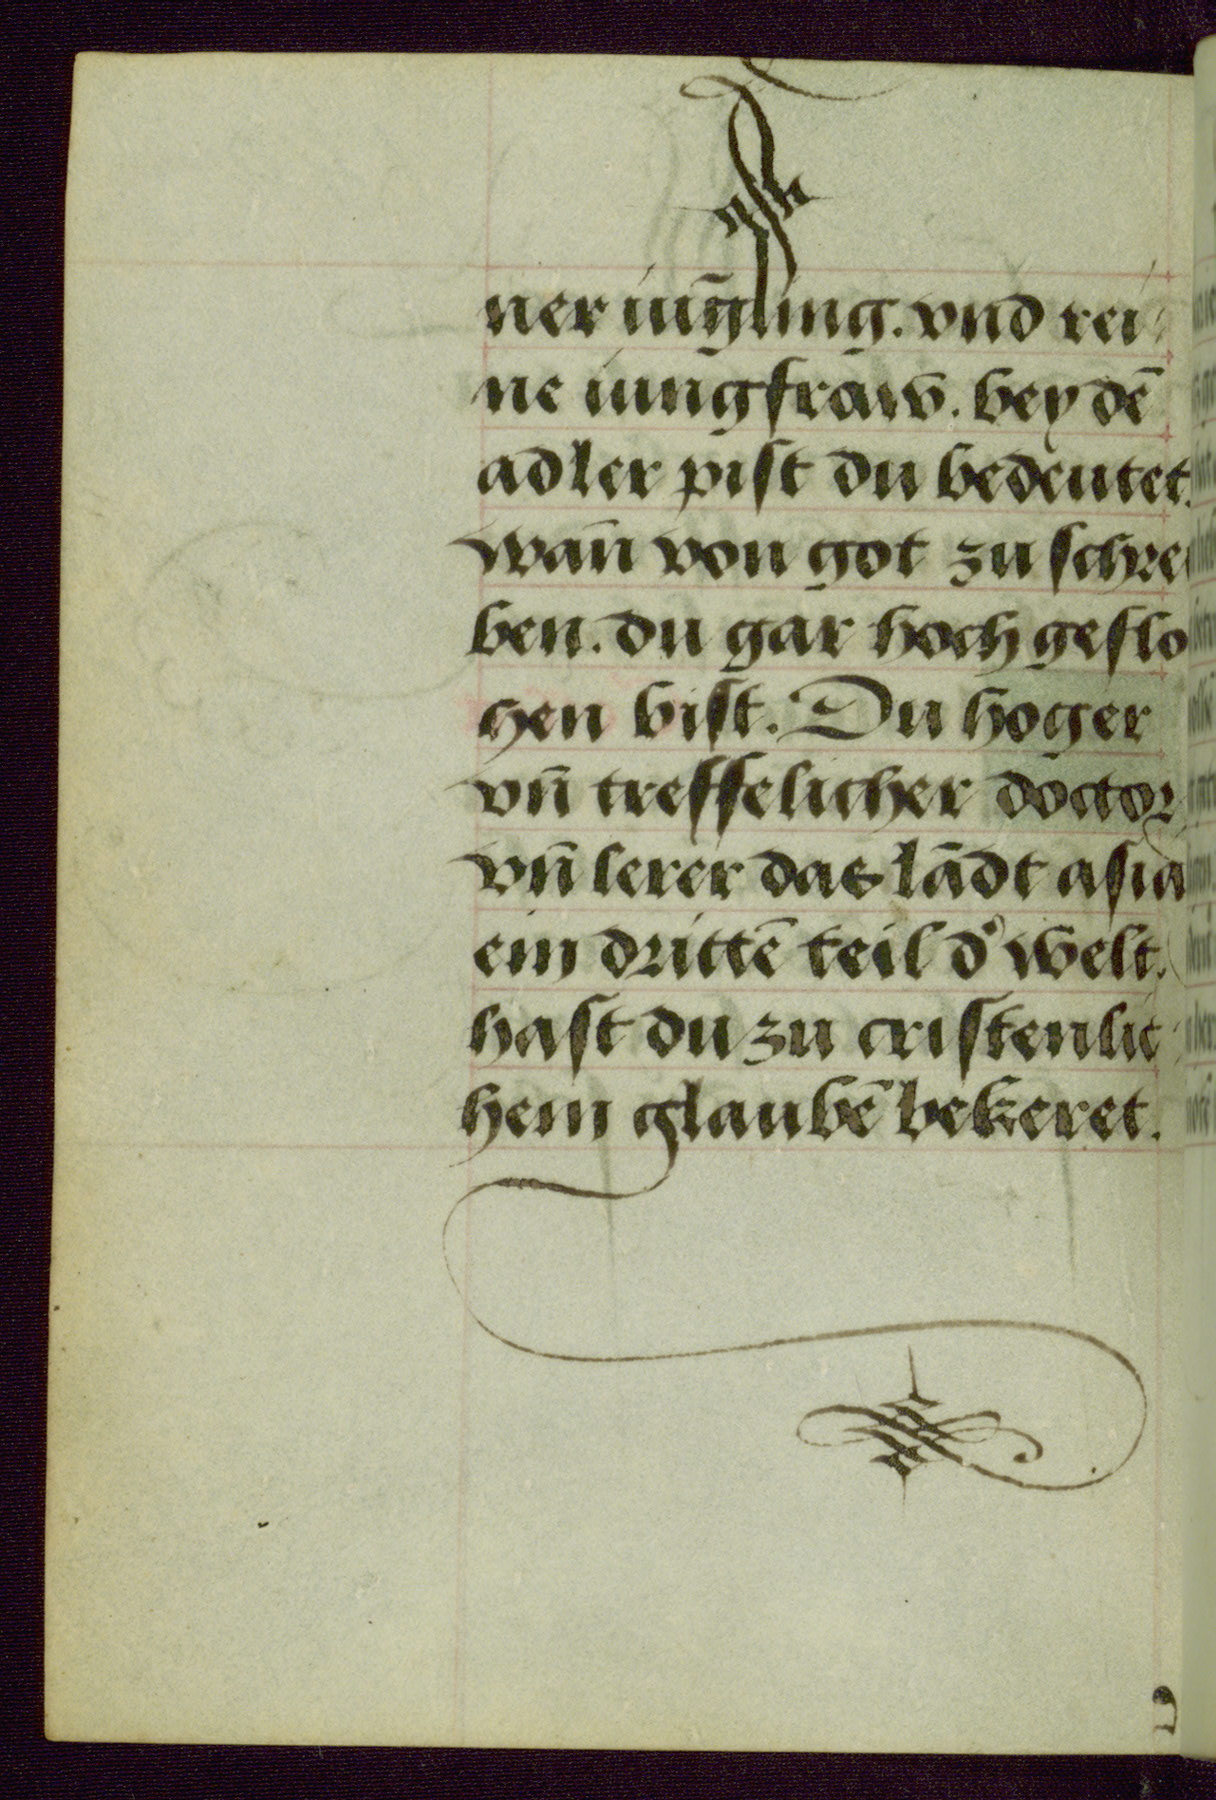 ner iūgling. vnd rei
ne iungfraw̄. bey dē
adler pist du bedeutet.
wan̄ von got zu schrei
ben. du gar hoch geflo
hen bist. Du hoger
vn̄ treffelicher doctor
vn̄ lerer das lādt asia
ein drittē teil d' welt.
hast du zu cristenlic
hem glaubē bekeret.